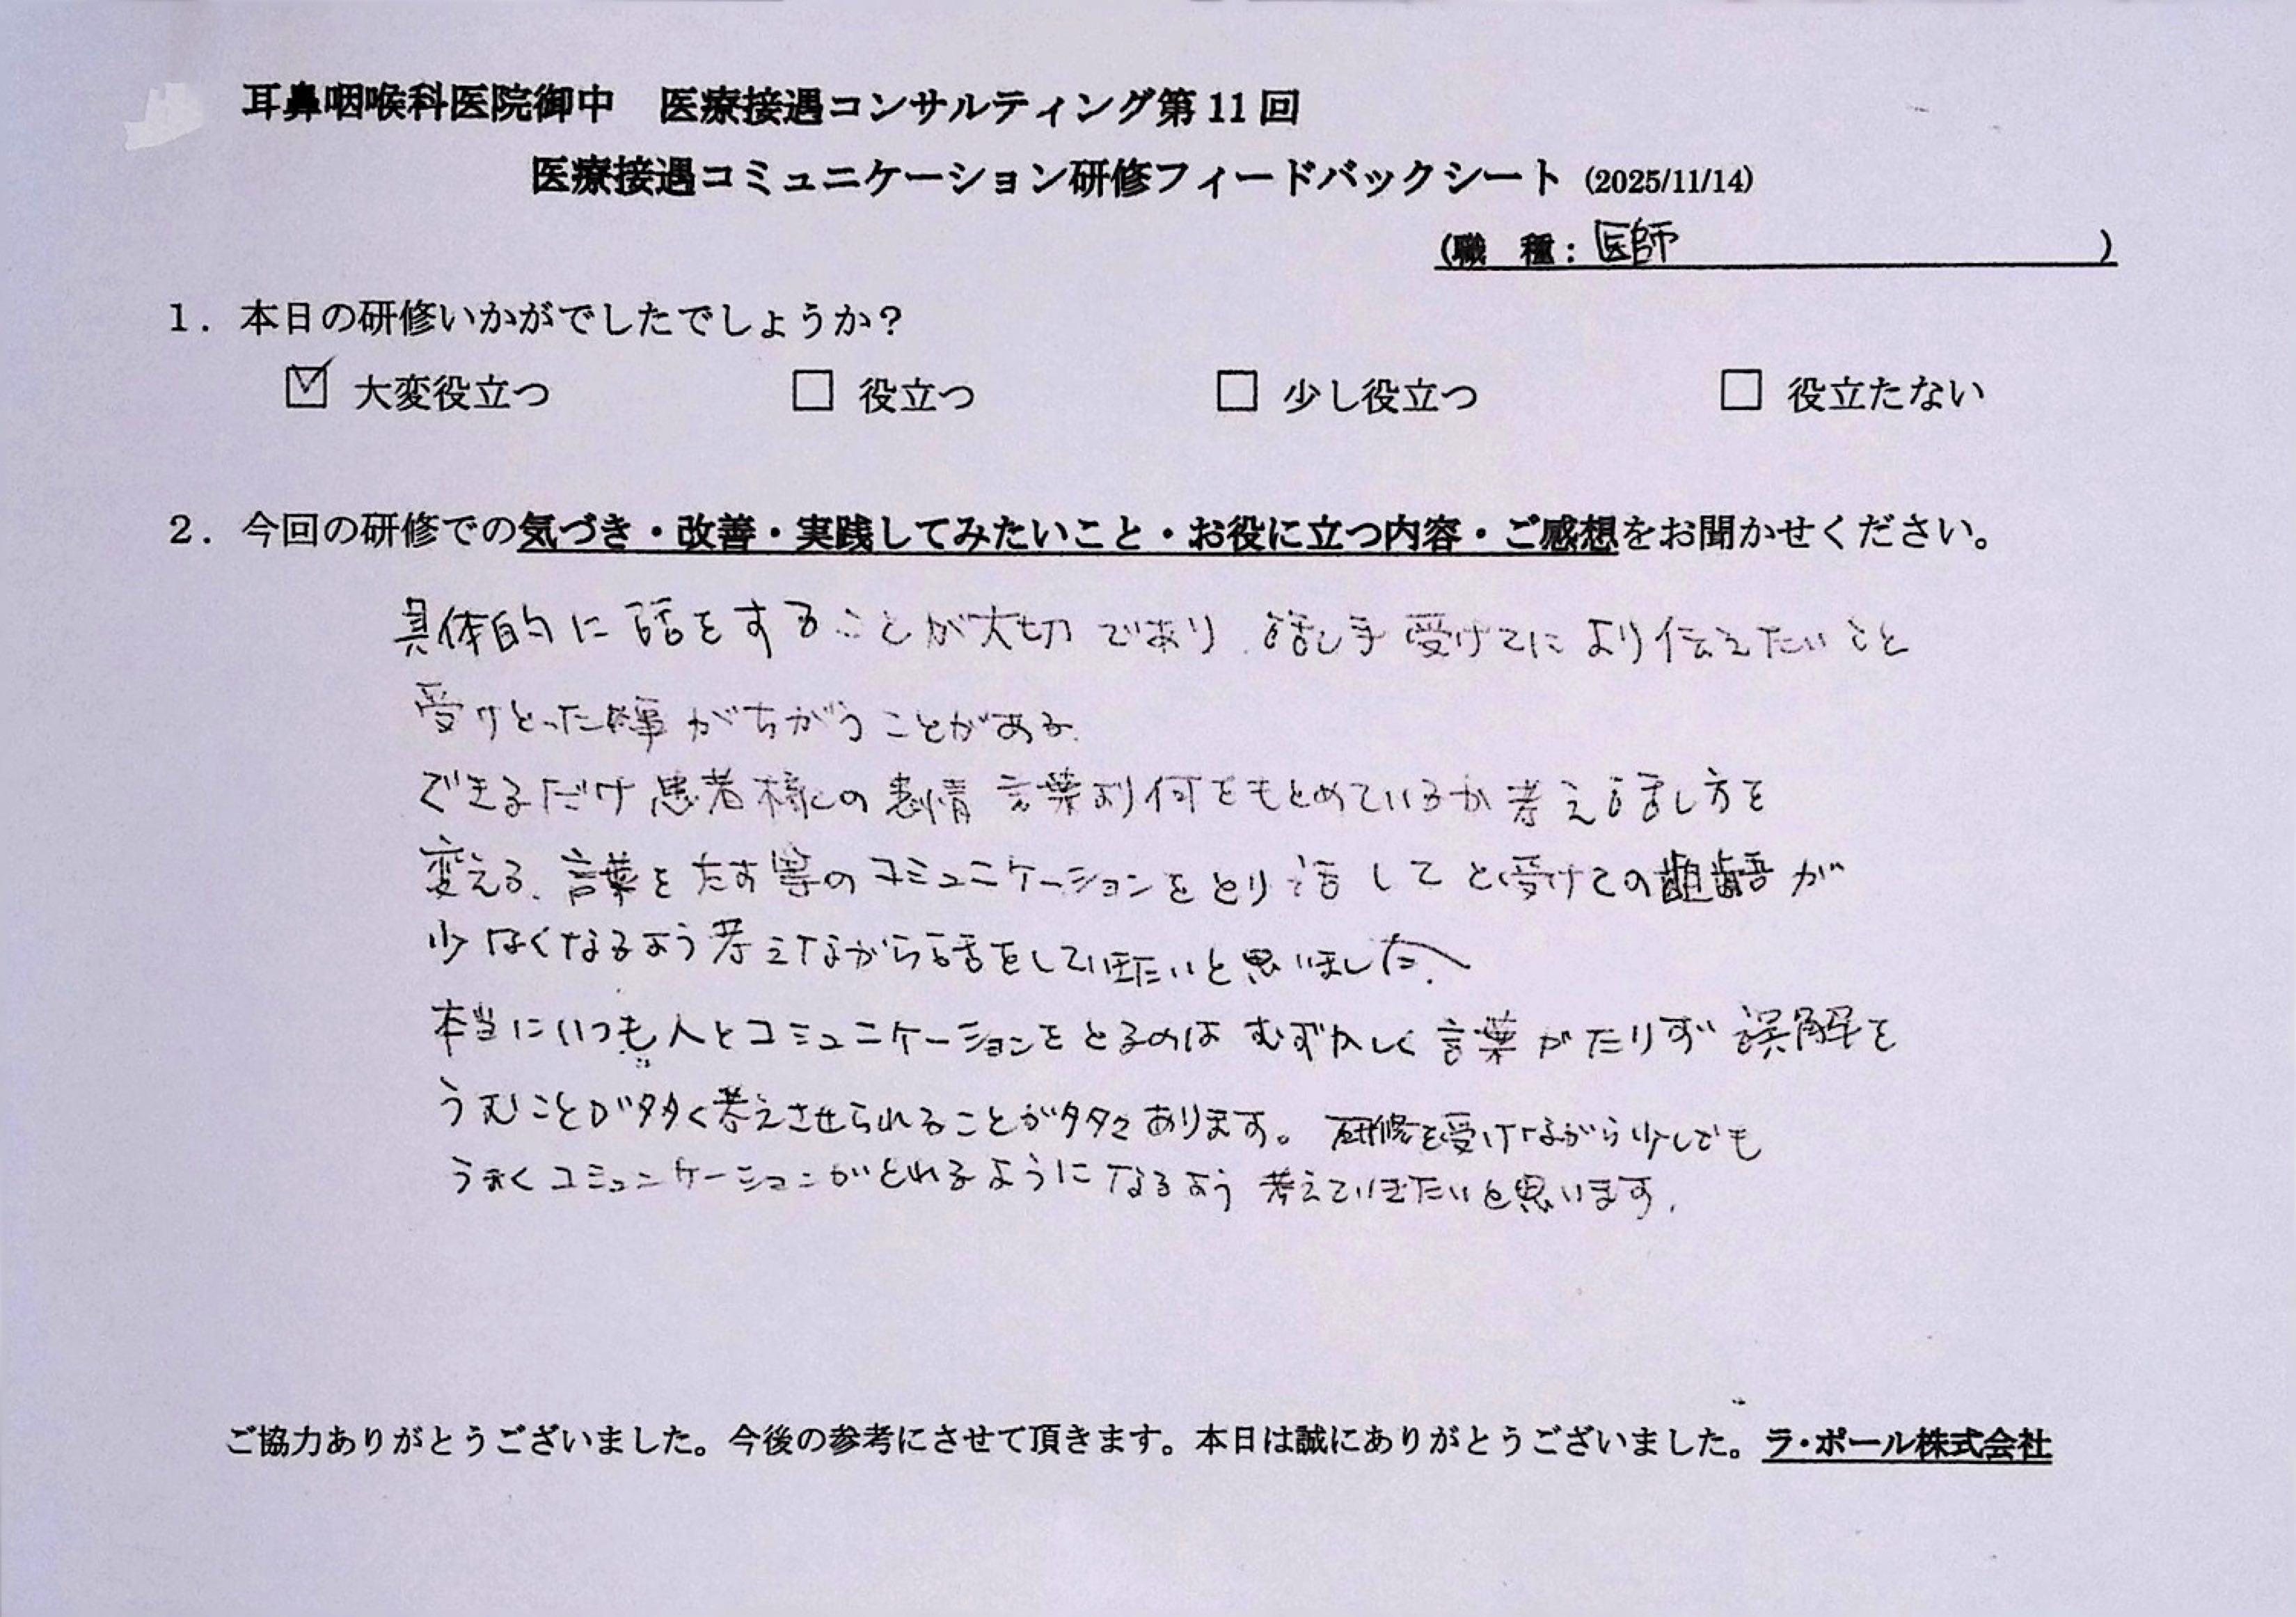 耳鼻咽喉科医院御中　医療接遇コンサルティング第11回
医療接遇コミュニケーション研修フィードバックシート (2025/11/14)
(職　種：医師　)
１．本日の研修いかがでしたでしょうか？
☑ 大変役立つ　□ 役立つ　□ 少し役立つ　□ 役立たない
２．今回の研修での気づき・改善・実践してみたいこと・お役に立つ内容・ご感想をお聞かせください。
具体的に話をすることが大切であり、話し手受けてにより伝えたいこと
受けとった事がちがうことがある.
できるだけ患者様の表情 言葉より何をもとめているか考え話し方を
変える、言葉をたす等のコミュニケーションをとり話してと受けての齟齬が
少なくなるよう考えながら話をしていきたいと思いました.
本当にいつも人とコミュニケーションをとるのはむずかしく言葉がたりず誤解を
うむことが多く考えさせられることが多々あります。研修を受けながら少しでも
うまくコミュニケーションがとれるようになるよう考えていきたいと思います.
ご協力ありがとうございました。今後の参考にさせて頂きます。本日は誠にありがとうございました。ラ・ポール株式会社